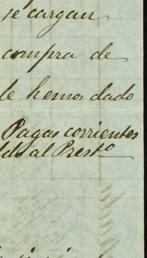 se cargan
compra de
le hemos dado
Pagas corrientes
al Presto